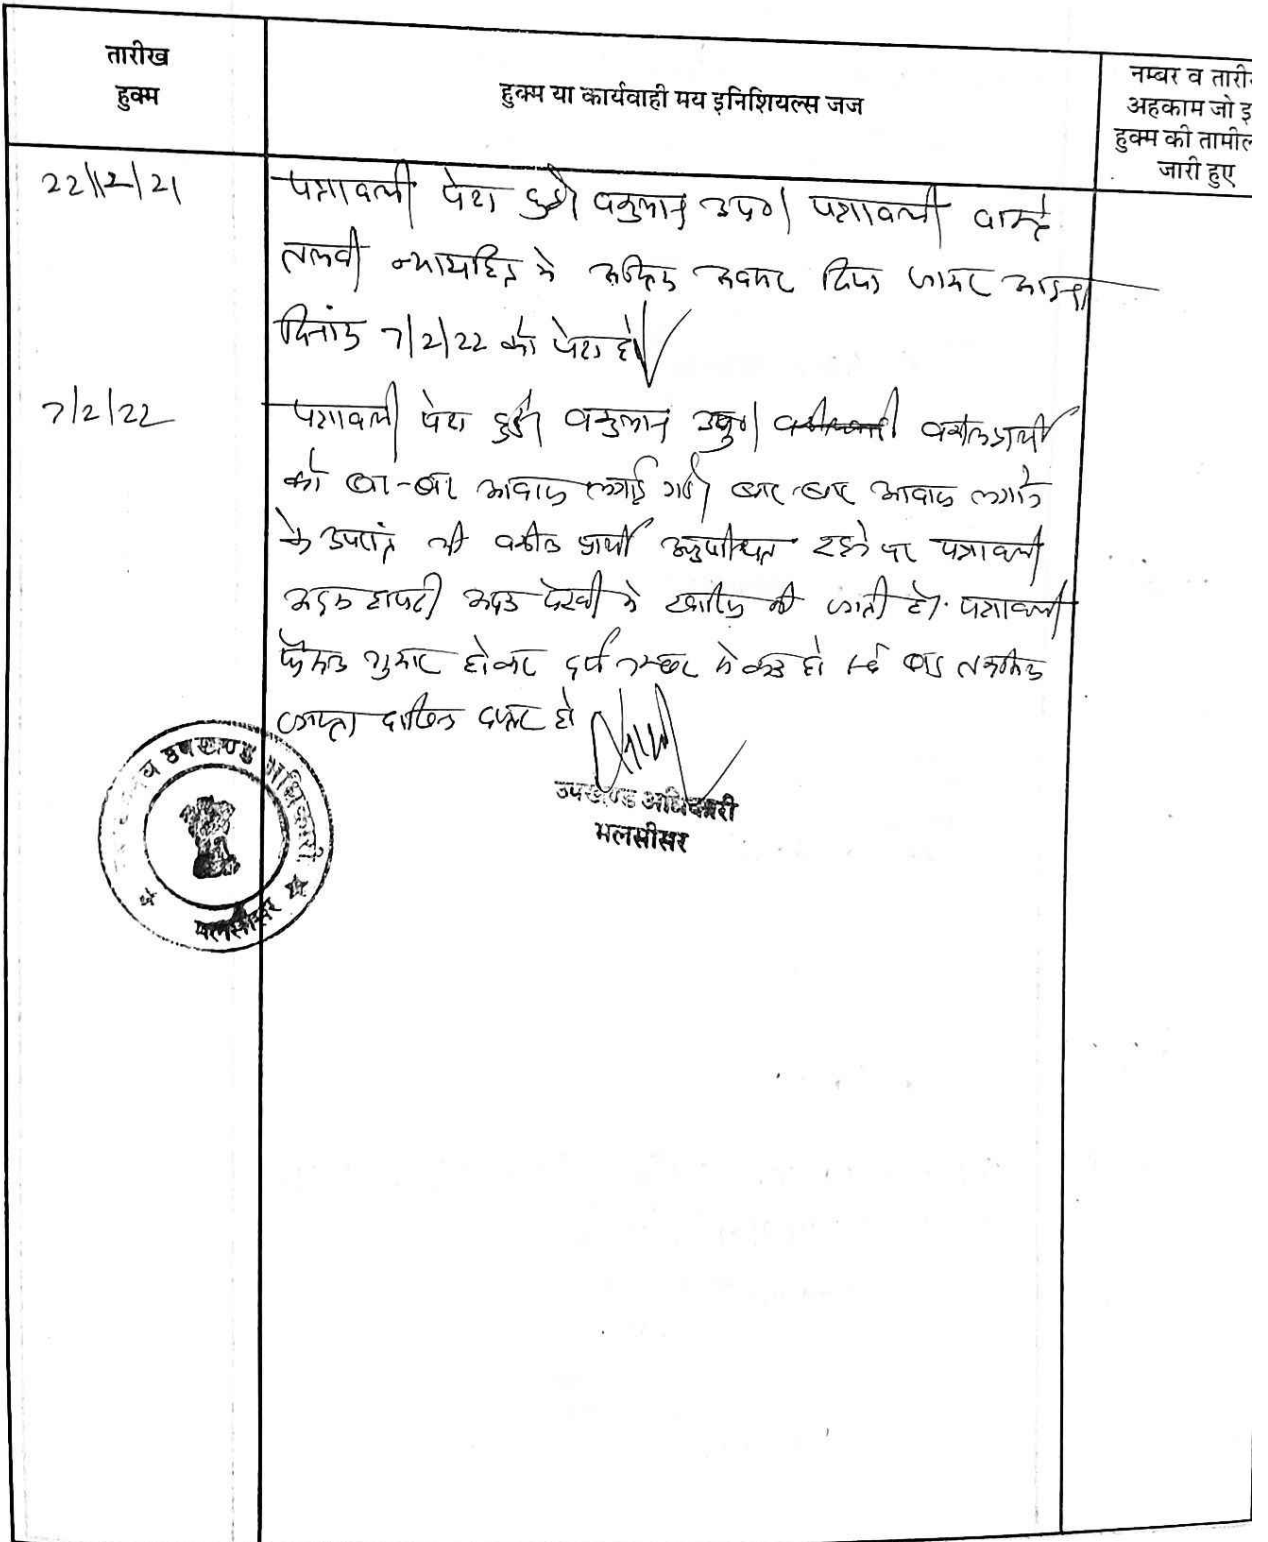 तारीख
हुक्म
हुक्म या कार्यवाही मय इनिशियल्स जज
नम्बर व तारी
अहकाम जो इ
हुक्म की तामील
जारी हुए
22/12/21
पत्रावली पेश हुई। वकुलान उप०। पत्रावली वास्ते
तलवी न्यायहित में अंतिम अवसर दिया जाकर
दिनांक 7/2/22 को पेश हो।
7/2/22
पत्रावली पेश हुई। वकुलान उप०। वकील प्रार्थी
को बार-बार आवाज लगाई गई। बार-बार आवाज लगाने
के उपरांत भी वकील प्रार्थी अनुपस्थित रहने पर पत्रावली
अदम हाजरी अदम पैरवी में खारीज की जाती है। पत्रावली
फैसल शुमार होकर दर्ज नम्बर से कम हो बाद तकमील
जाप्ता दाखिल दफ्तर हो
उपखण्ड अधिकारी
मलसीसर
उपखण्ड अधिकारी
मलसीसर